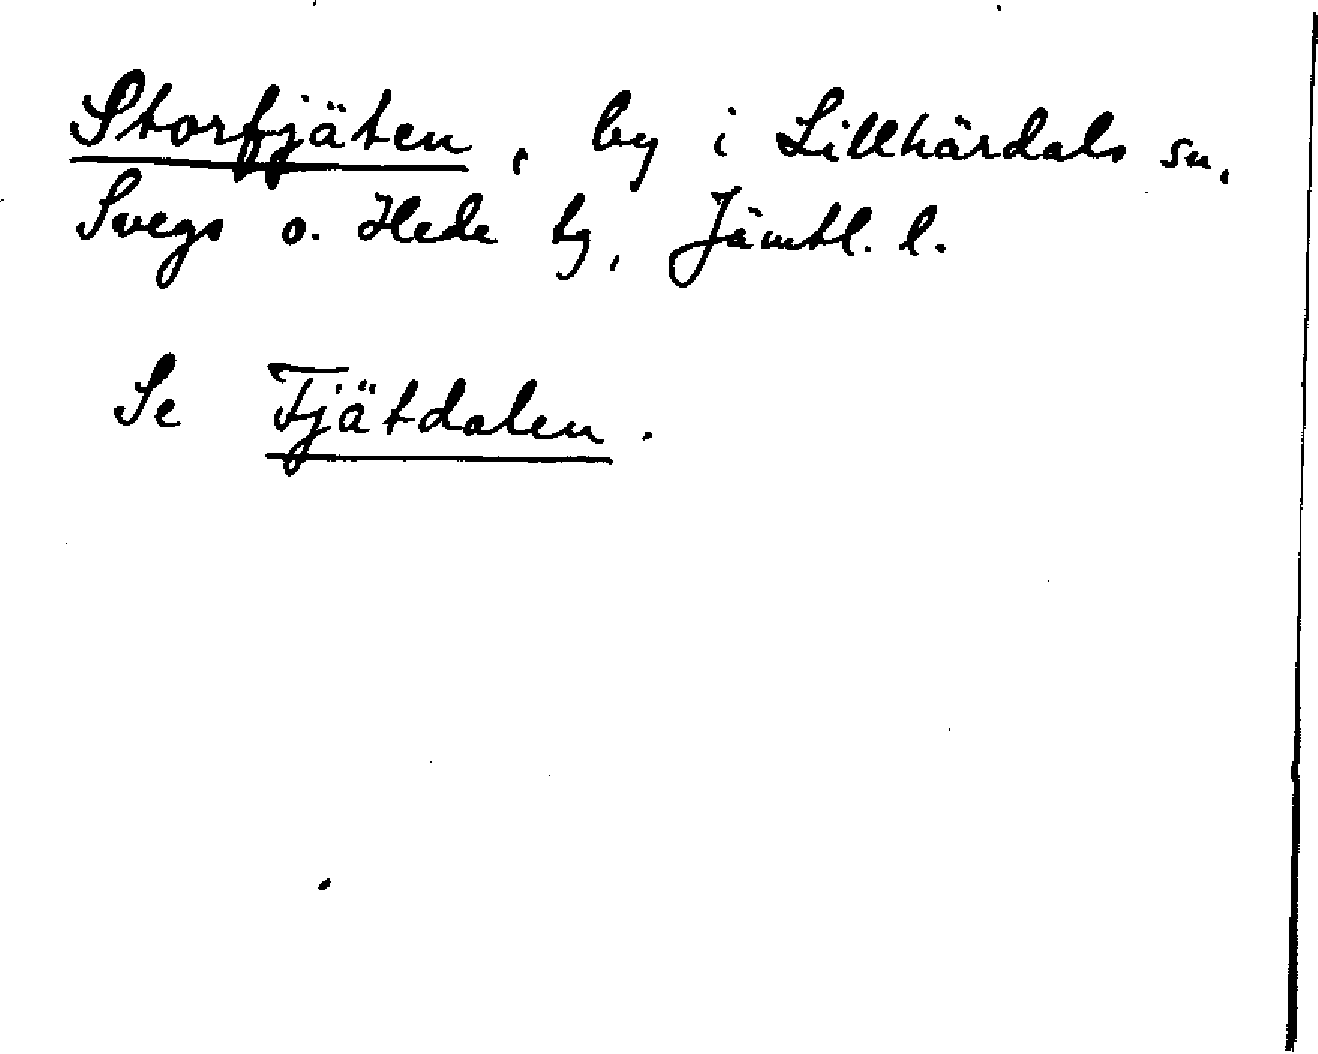 Storfjäten, by i Lillhärdals sn,
Svegs o. Hede tg, Jämtl. l.
Se Fjätdalen.